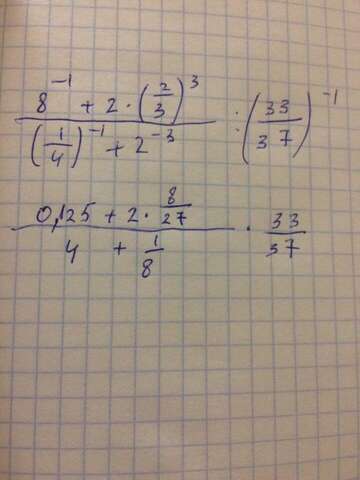 \frac{8^{-1} + 2 \cdot \left(\frac{2}{3}\right)^3}{\left(\frac{1}{4}\right)^{-1} + 2^{-3}} : \left(\frac{33}{37}\right)^{-1}
\frac{0,125 + 2 \cdot \frac{8}{27}}{4 + \frac{1}{8}} \cdot \frac{33}{37}